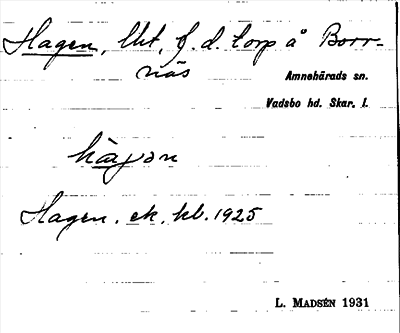 Hagen, lht, f.d. torp å Borr-
näs
Amnehärads sn.
Vadsbo hd. Skar. l.
hàgən
Hagen. ek. kb. 1925
L. MADSÉN 1931